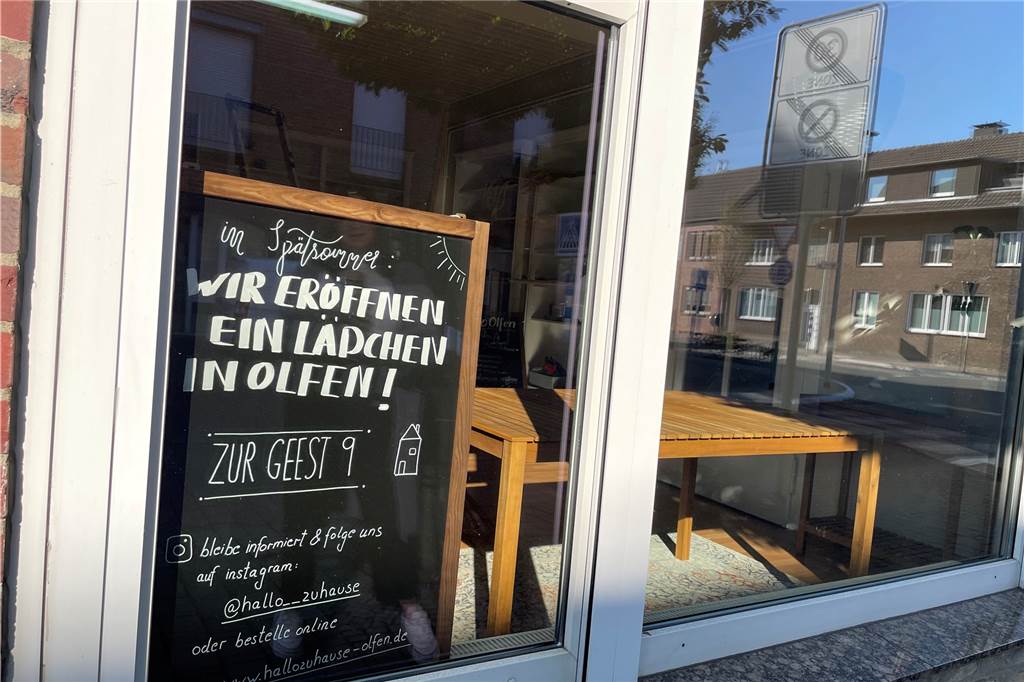 im Spätsommer:
WIR ERÖFFNEN
EIN LÄDCHEN
IN OLFEN!
ZUR GEEST 9
bleibe informiert & folge uns
auf instagram:
@hallo__zuhause
oder bestelle online
www.hallozuhause-olfen.de
Olfen
ZONE
ZONE